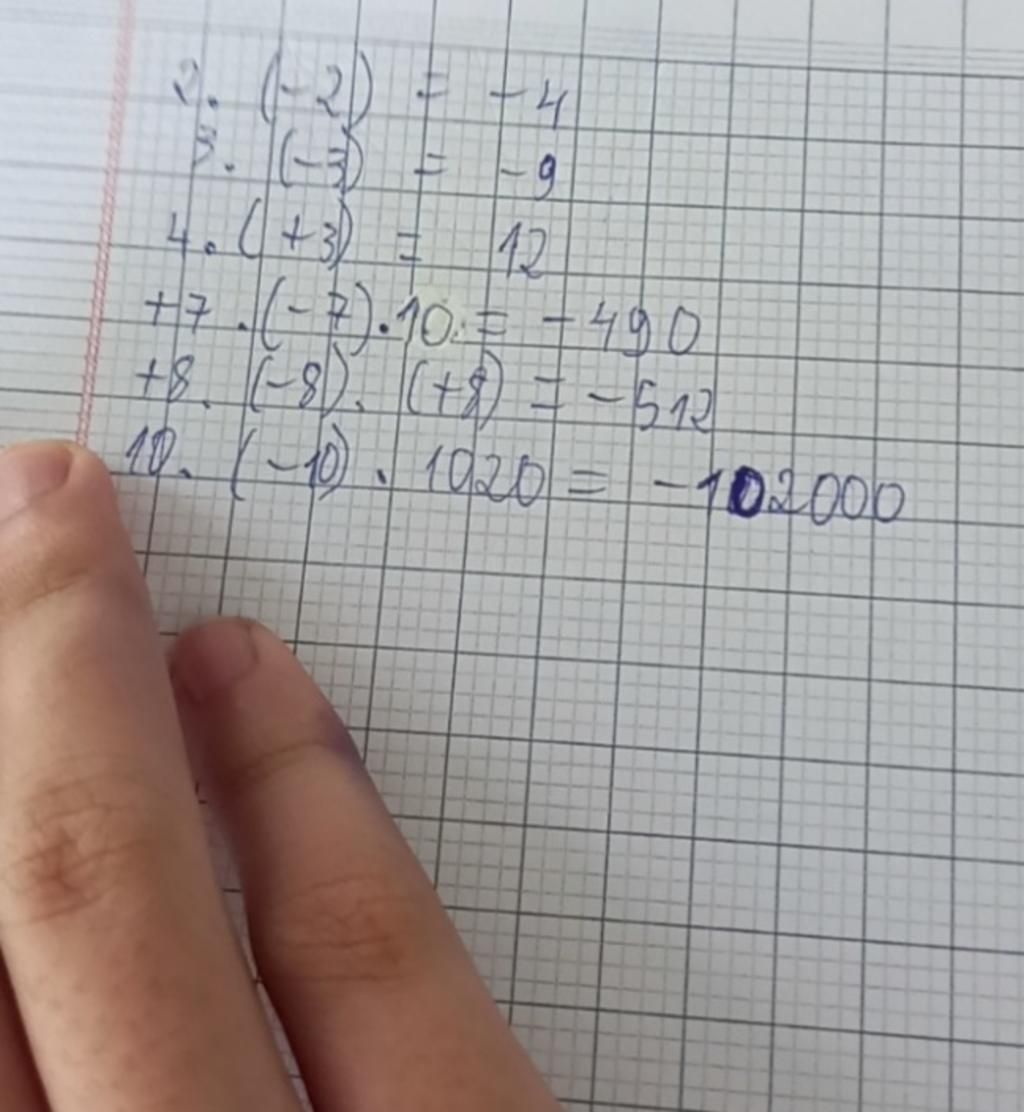 2. (-2) = -4
3. (-3) = -9
4. (+3) = 12
+7 .(-7).10 = -490
+8. (-8). (+8) = -512
10. (-10). 1020 = -102000